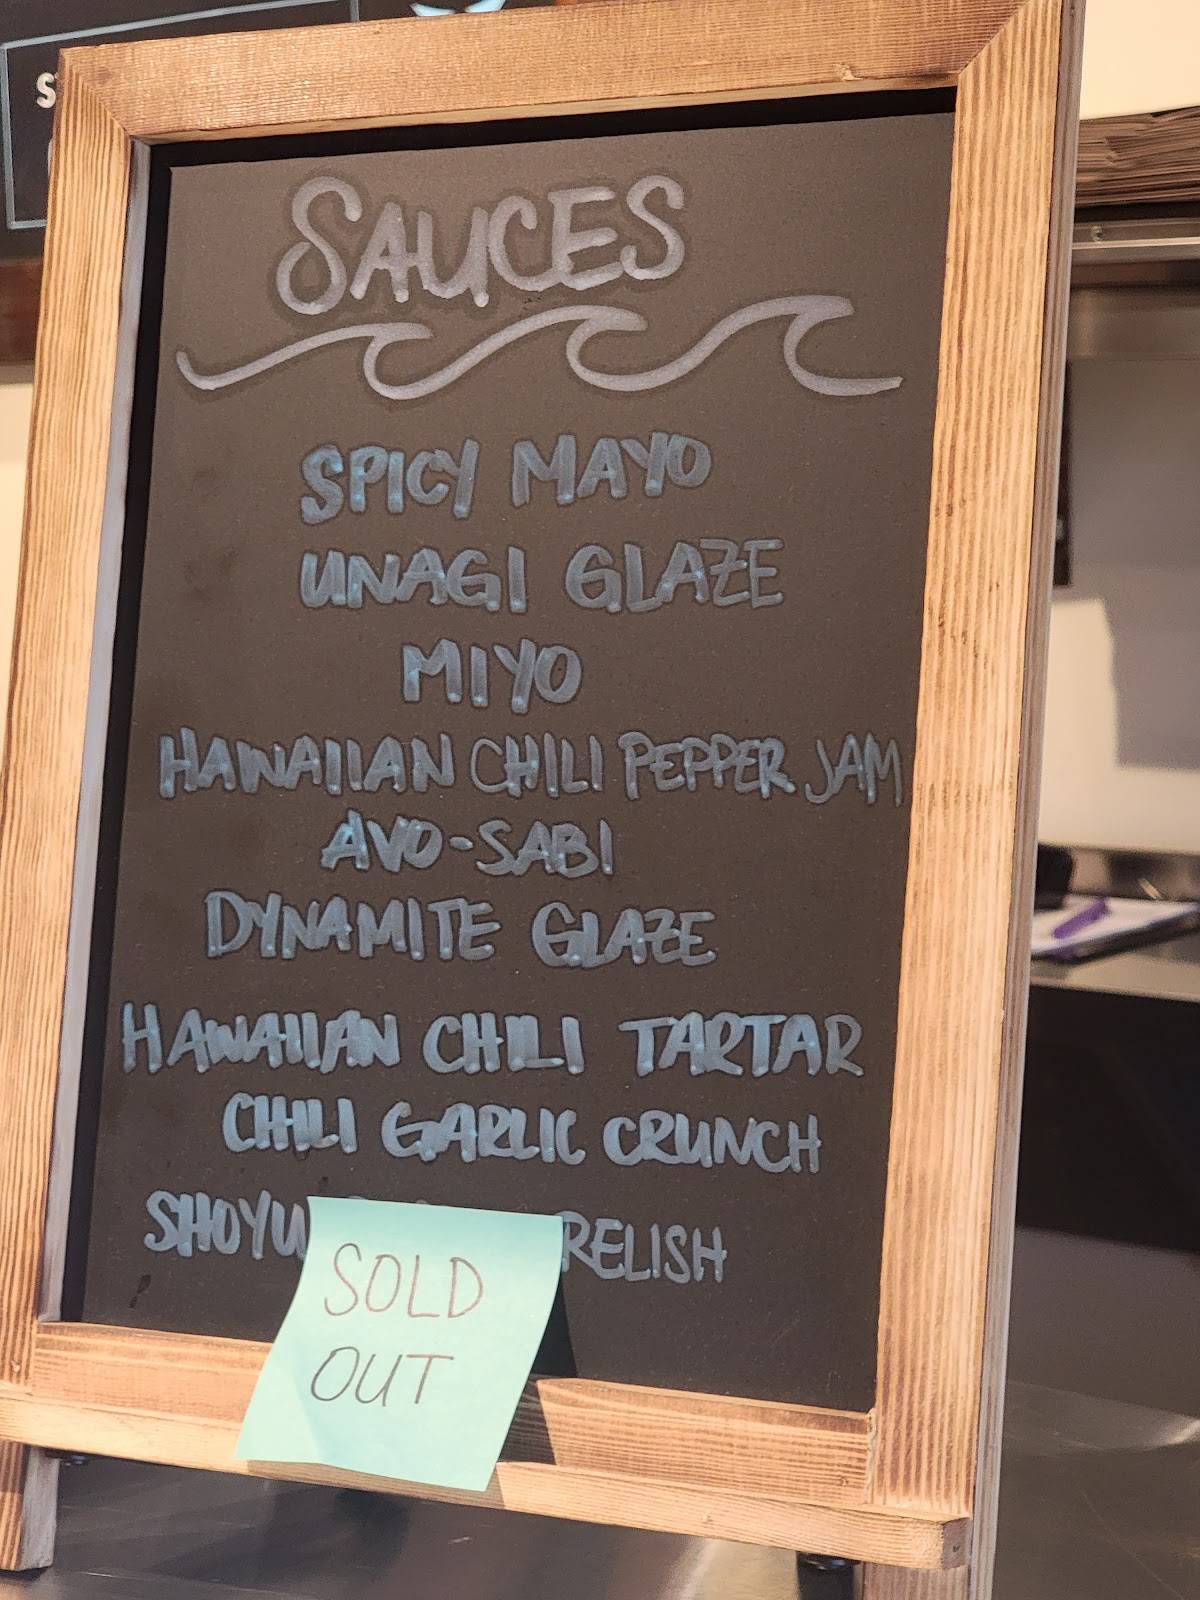 SAUCES
SPICY MAYO
UNAGI GLAZE
MIYO
HAWAIIAN CHILI PEPPER JAM
AVO-SABI
DYNAMITE GLAZE
HAWAIIAN CHILI TARTAR
CHILI GARLIC CRUNCH
SHOYU RELISH
SOLD
OUT